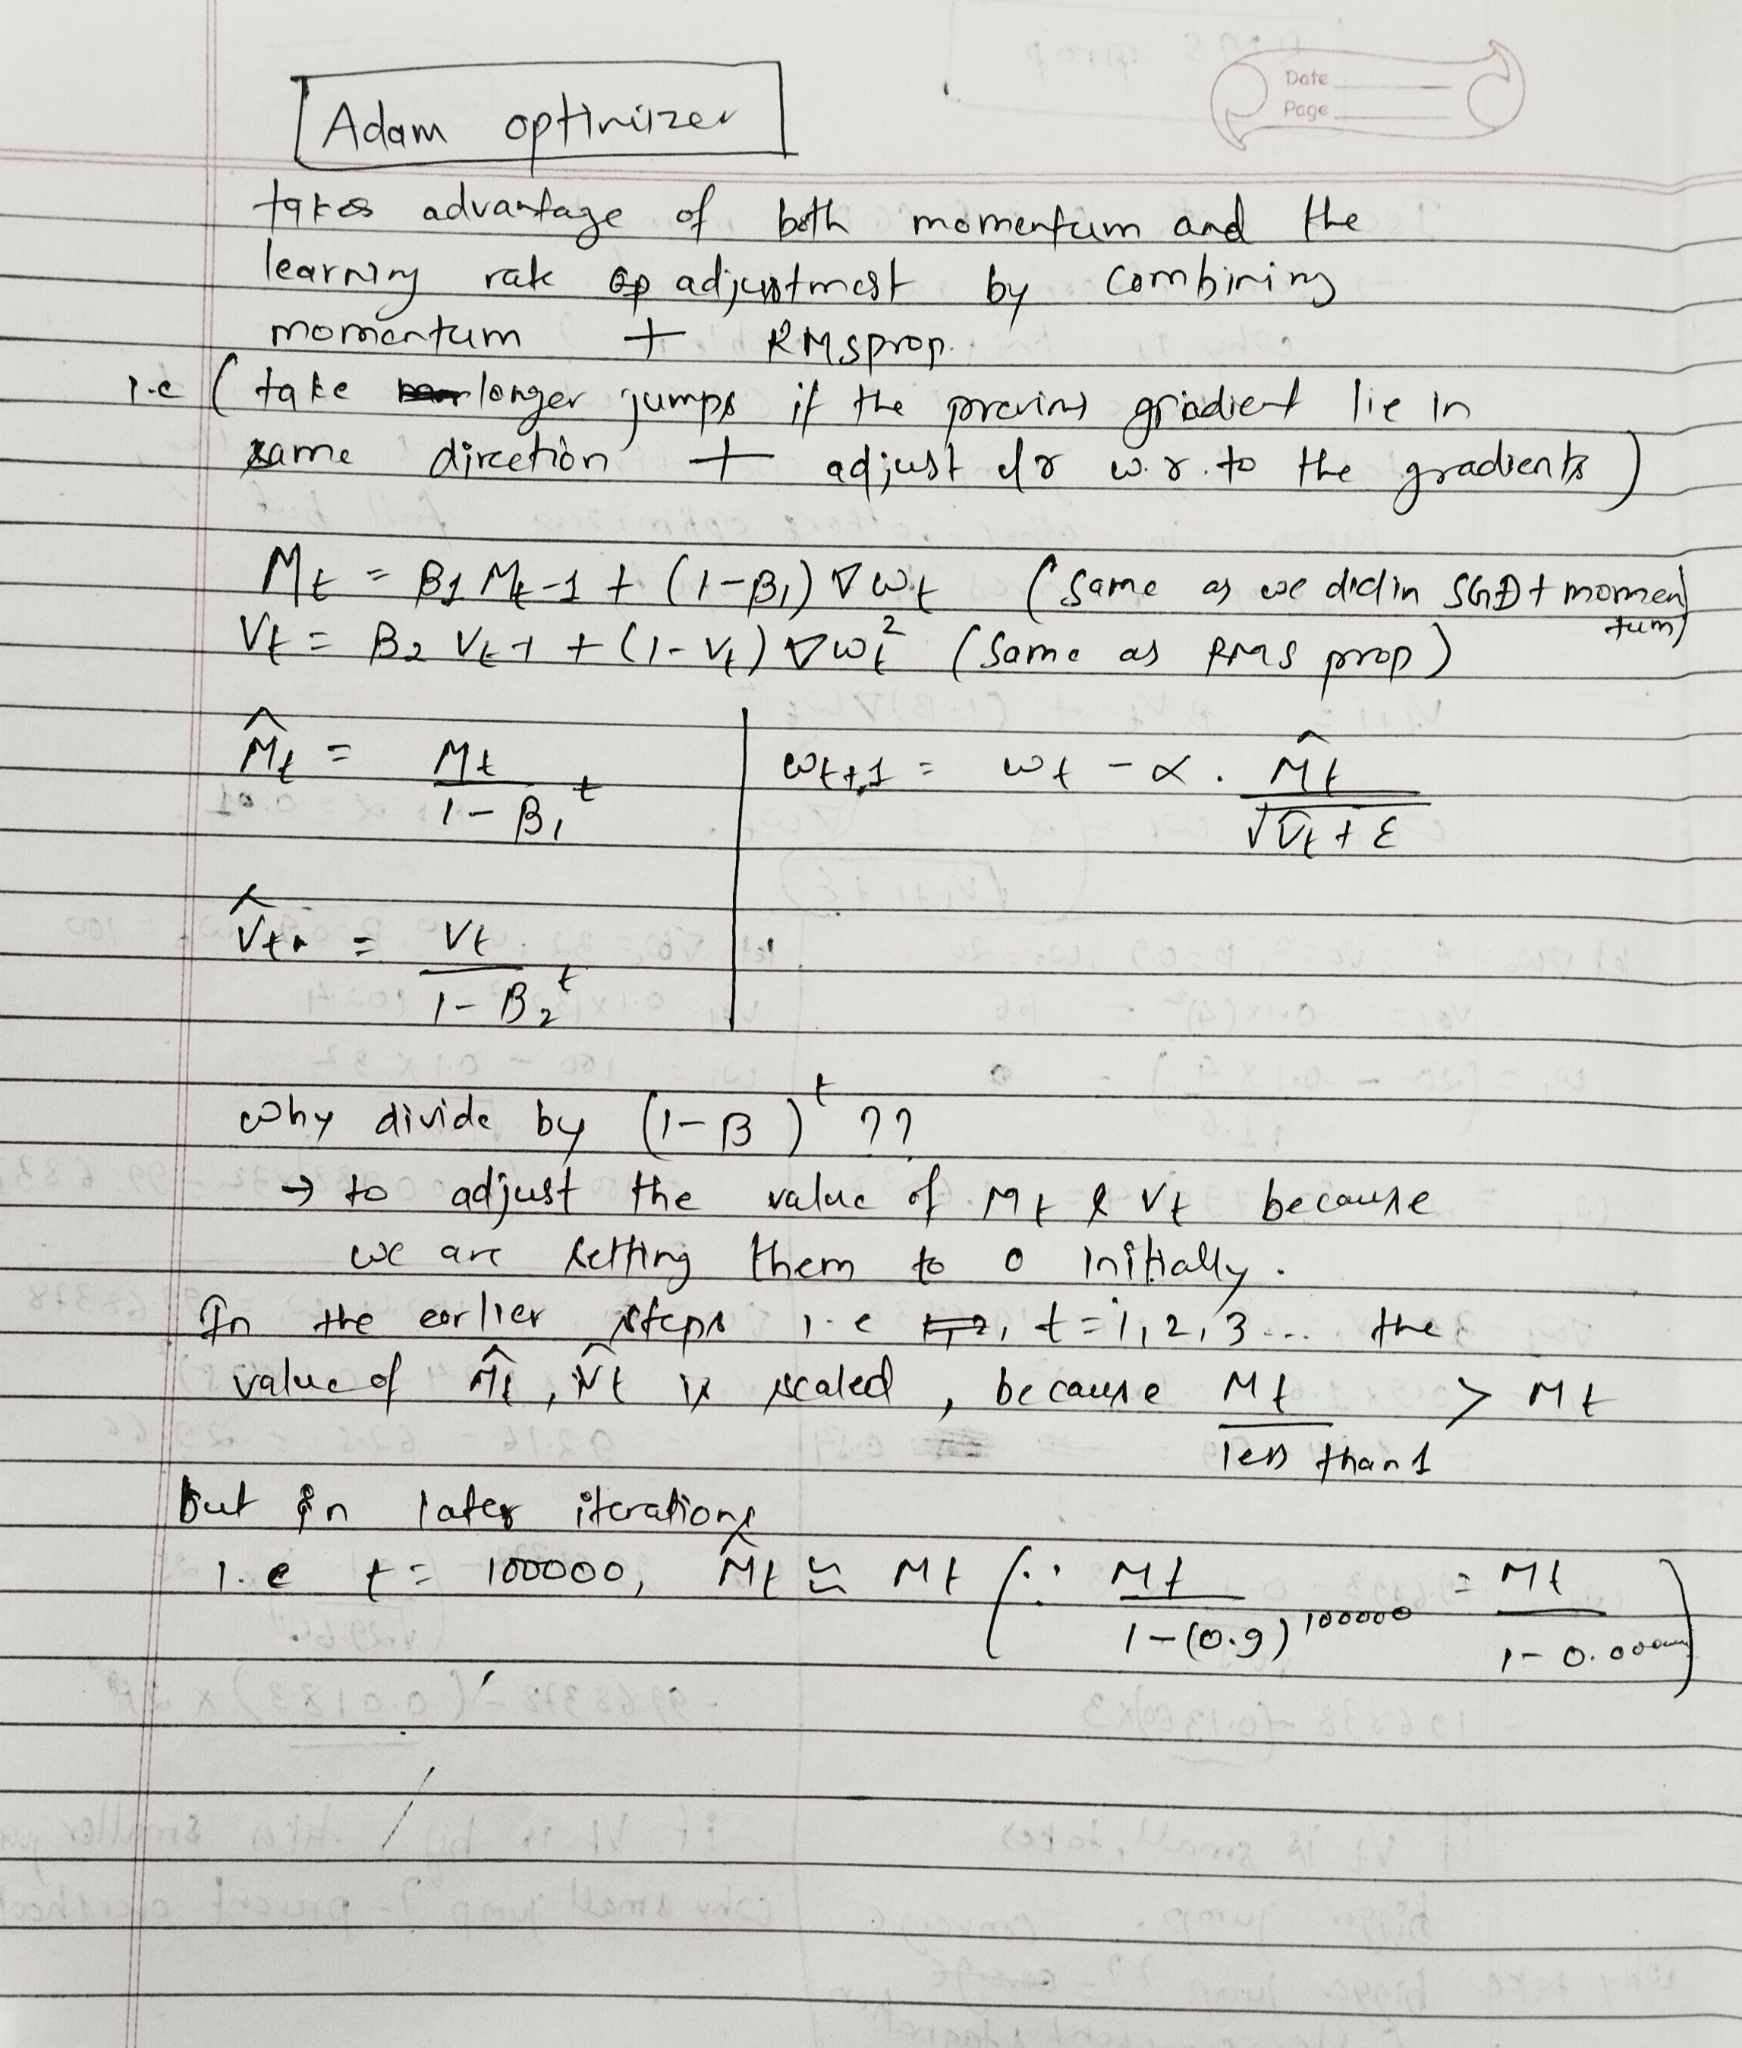 Date
Page
Adam optimizer
takes advantage of both momentum and the
learning rate adjustment by combining
momentum + RMSprop.
i.e ( take longer jumps if the previous gradient lie in
same direction + adjust lr w.r.to the gradients )
Mt = β1 Mt-1 + (1-β1) ∇wt (same as we did in SGD + momentum)
Vt = β2 Vt-1 + (1-Vt) ∇wt² (same as RMS prop)
M̂t = Mt / 1-β1^t
wt+1 = wt - α . M̂t / √V̂t + ε
V̂t = Vt / 1-β2^t
why divide by (1-β)^t ??
→ to adjust the value of Mt & Vt because
we are setting them to 0 initially.
In the earlier steps i.e t=1,2,3... the
value of M̂t, V̂t is scaled, because Mt / less than 1 > Mt
but in later iterations
i.e t = 100000, M̂t ≃ Mt (∵ Mt / 1-(0.9)^100000 = Mt / 1-0.000)